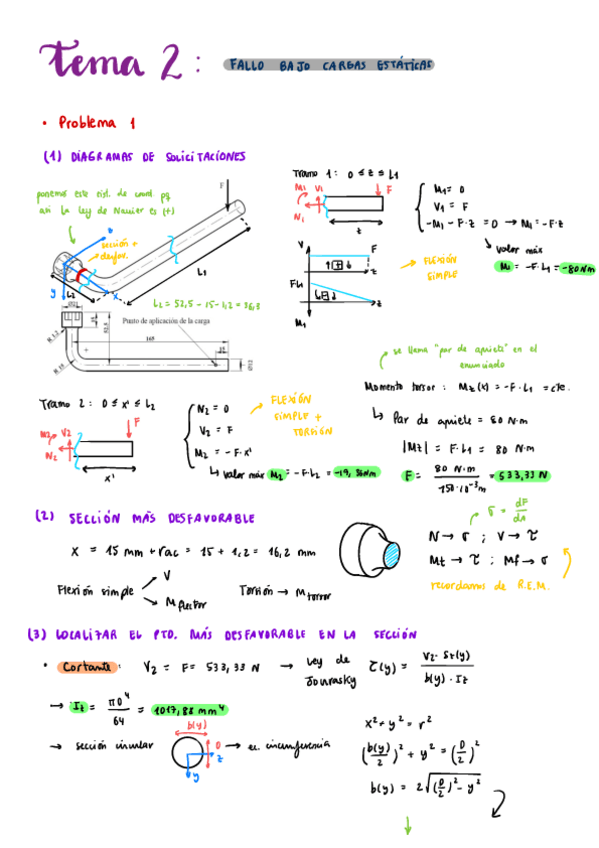 Tema 2 : FALLO BAJO CARGAS ESTÁTICAS
• Problema 1
(1) DIAGRAMAS DE SOLICITACIONES
ponemos este sist. de coord pq
así la ley de Navier es (+)
sección +
desfav.
F
z
y
x
L2
L1
L2 = 52,5 - 15 - 1,2 = 36,3
Punto de aplicación de la carga
165
15
52,5
R 1,2
R 15
Tramo 1 : 0 ≤ z ≤ L1
M1 V1 F
N1
z
M1 = 0
V1 = F
-M1 - F·z = 0 → M1 = -F·z
valor máx
M1 = -F·L1 = -80Nm
V
F
z
FL1
z
M1
→ FLEXIÓN
SIMPLE
se llama "par de apriete" en el
enunciado
Momento torsor : Mz(x) = -F·L1 = cte.
↳ Par de apriete = 80 N·m
|Mz| = F·L1 = 80 N·m
F = 80 N·m / 150·10⁻³m = 533,33 N
Tramo 2 : 0 ≤ x' ≤ L2
M2 V2 F
N2
x'
N2 = 0
V2 = F
M2 = -F·x'
↳ valor máx M2 = -F·L2 = -19,36Nm
→ FLEXIÓN
SIMPLE +
TORSIÓN
(2) SECCIÓN MÁS DESFAVORABLE
x = 15 mm + rac = 15 + 1,2 = 16,2 mm
Flexión simple
V
M flector
Torsión → M torsor
σ = dF/dA
N → σ ; V → τ
Mt → τ ; Mf → σ
recordamos de R.E.M.
(3) LOCALIZAR EL PTO. MÁS DESFAVORABLE EN LA SECCIÓN
• Cortante: V2 = F = 533,33 N → Ley de Jourasky τ(y) = V2·Sz(y) / b(y)·Iz
→ Iz = πD⁴/64 = 1017,88 mm⁴
b(y)
→ sección circular
D
z
y
→ ec. circunferencia
x² + y² = r²
(b(y)/2)² + y² = (D/2)²
b(y) = 2√((D/2)² - y²)